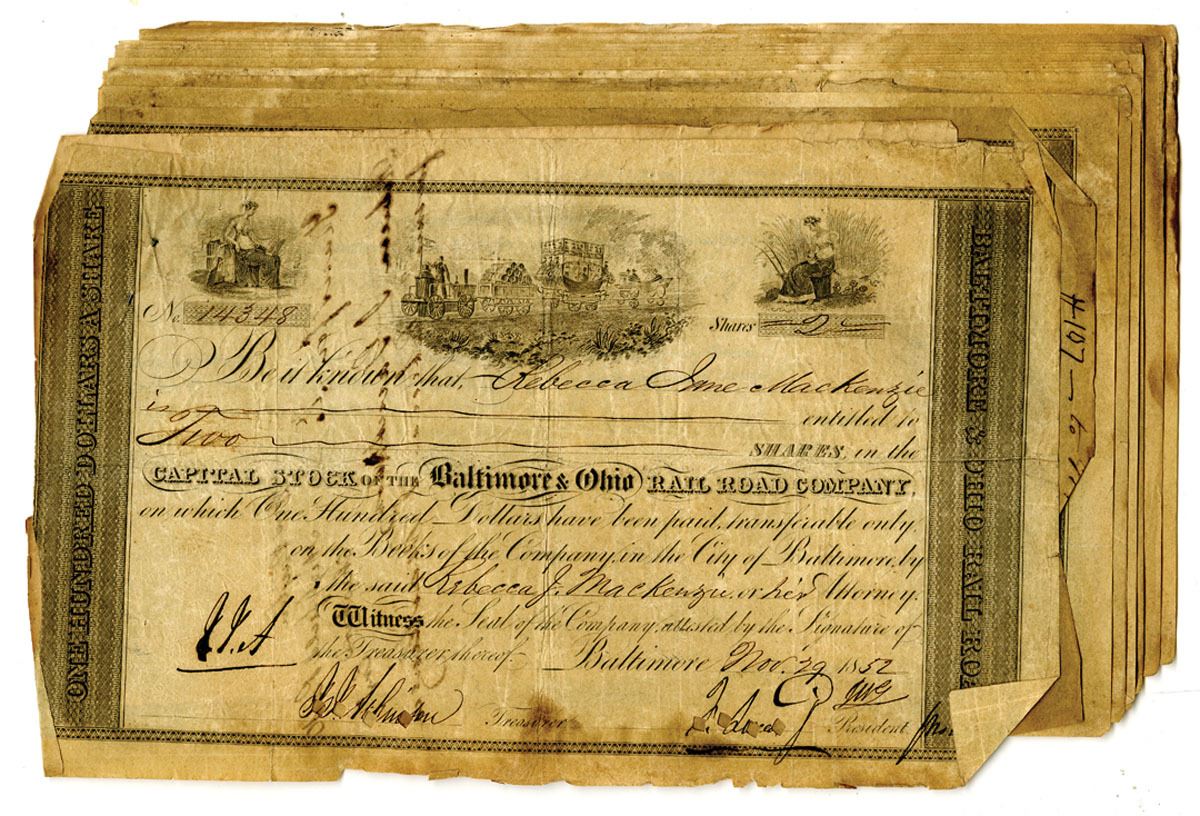 No. 14348
Shares 2
Be it known that, Rebecca Jane MacKenzie
is entitled to
Two SHARES, in the
CAPITAL STOCK OF THE Baltimore & Ohio RAIL ROAD COMPANY,
on which One Hundred Dollars have been paid, transferable only,
on the Books of the Company, in the City of Baltimore, by
the said Rebecca J. MacKenzie or her Attorney.
Witness the Seal of the Company, attested by the Signature of
the Treasurer thereof. Baltimore Nov. 29 1852
Treasurer President
ONE HUNDRED DOLLARS A SHARE
BALTIMORE & OHIO RAIL RO